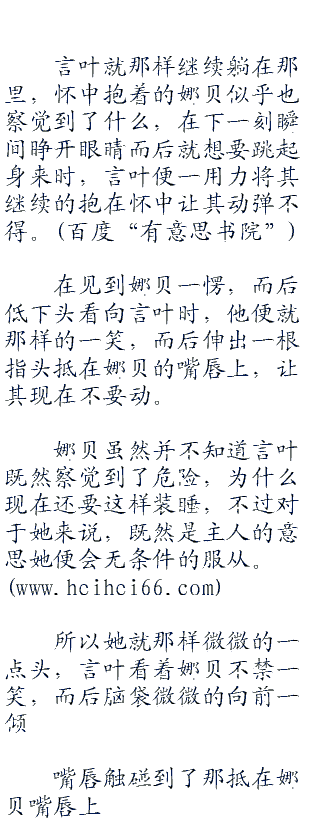 言叶就那样继续躺在那
里，怀中抱着的娜贝似乎也
察觉到了什么，在下一刻瞬
间睁开眼睛而后就想要跳起
身来时，言叶便一用力将其
继续的抱在怀中让其动弹不
得。(百度“有意思书院”)
在见到娜贝一愣，而后
低下头看向言叶时，他便就
那样的一笑，而后伸出一根
指头抵在娜贝的嘴唇上，让
其现在不要动。
娜贝虽然并不知道言叶
既然察觉到了危险，为什么
现在还要这样装睡，不过对
于她来说，既然是主人的意
思她便会无条件的服从。
(www.hcihci66.com)
所以她就那样微微的一
点头，言叶看着娜贝不禁一
笑，而后脑袋微微的向前一
倾
嘴唇触碰到了那抵在娜
贝嘴唇上